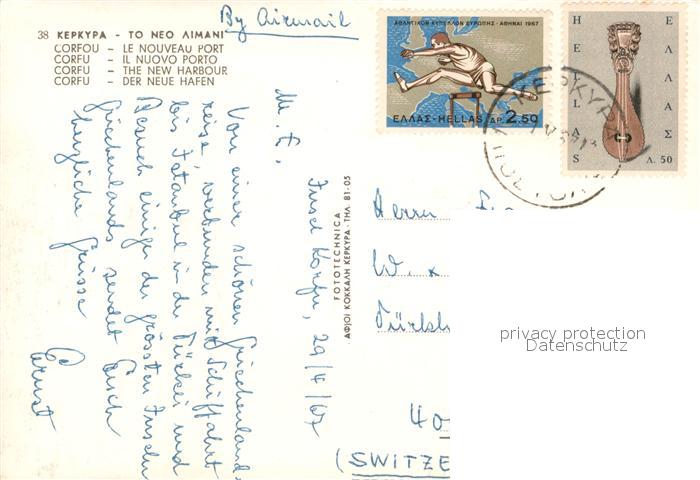 By Airmail
38 ΚΕΡΚΥΡΑ - ΤΟ ΝΕΟ ΛΙΜΑΝΙ
CORFOU - LE NOUVEAU PORT
CORFU - IL NUOVO PORTO
CORFU - THE NEW HARBOUR
CORFU - DER NEUE HAFEN
ΑΘΛΗΤΙΚΟΝ ΚΥΠΕΛΛΟΝ ΕΥΡΩΠΗΣ - ΑΘΗΝΑΙ 1967
ΕΛΛΑΣ-HELLAS ΔΡ. 2.50
HELLAS
ΕΛΛΑΣ
Λ. 50
ΚΕΡΚΥΡΑ
Insel Korfu, 29/4/67
M. L.
Von einer schönen Griechenland-
reise, verbunden mit Schiffahrt
bis Istanbul in der Türkei und
Besuch einiger der grössten Inseln
Griechenlands sendet Euch
herzliche Grüsse
Ernst
FOTOTECHNICA
ΑΦΙΟΙ ΚΟΚΚΑΛΗ ΚΕΡΚΥΡΑ - ΤΗΛ. 81-05
Herrn
W. x
40
(SWITZE
privacy protection
Datenschutz